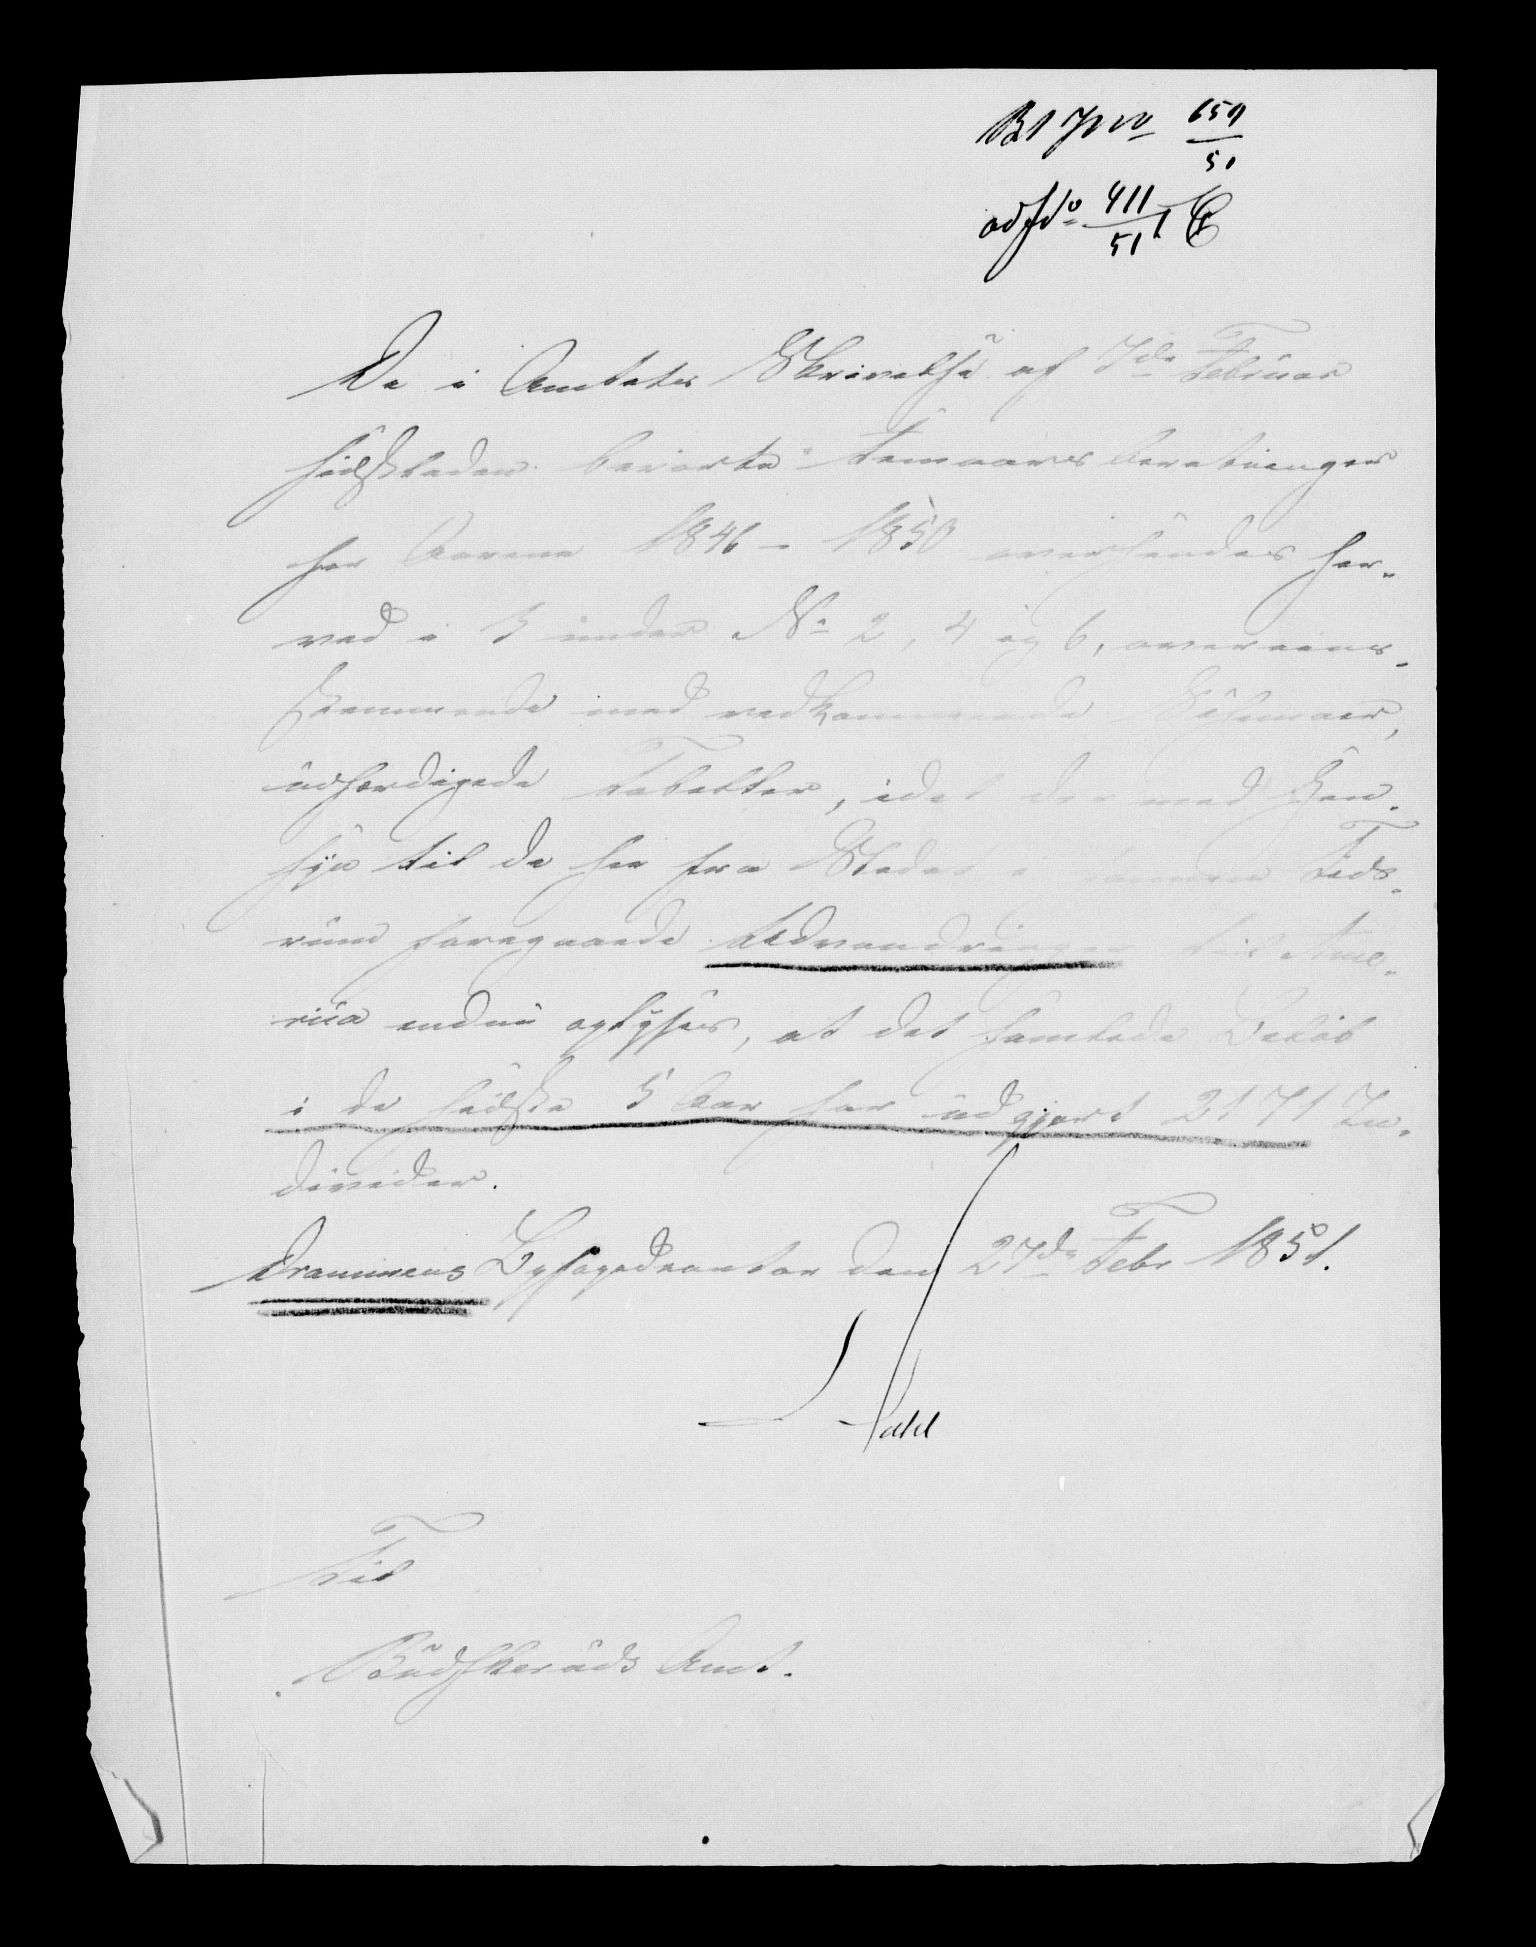 659
51
ad Jd° 411/51
De i Amtets Skrivelse af 7de Februar
sidstleden berørte Femaars Beretninger
for Aarene 1846 - 1850 oversendes her-
ved i 3 under No 2, 4 og 6, overeens-
stemmende med vedkommende Schemaer,
udfærdigede Tabeller, idet der med Hen-
syn til de her fra Stedet i samme Tids-
rum foregaaede Udvandringer til Ame-
rica endnu oplyses, at det samlede Beløb
i de sidste 5 Aar har udgjort 2171 In-
divider.
Drammens Byfogedcontor den 27de Febr 1851.
Til
Budskeruds Amt.